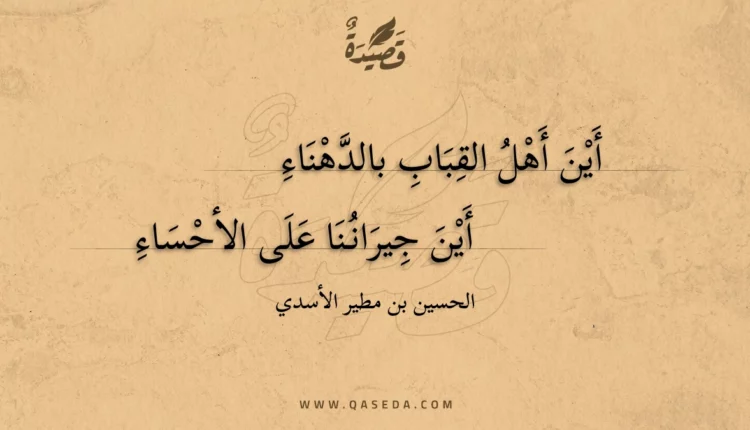 قَصِيْدَةٌ
أَيْنَ أَهْلُ القِبَابِ بالدَّهْنَاءِ
أَيْنَ جِيرَانُنَا عَلَى الأحْسَاءِ
الحسين بن مطير الأسدي
WWW.QASEDA.COM